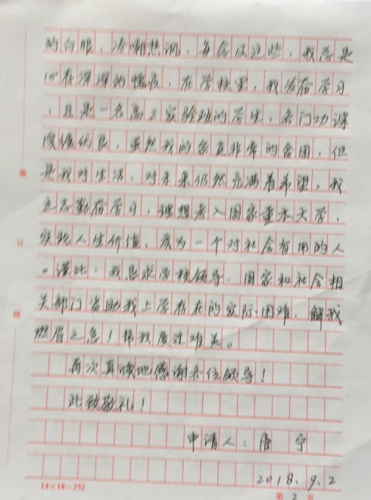 的白眼，冷嘲热讽，每念及这些，我总是
心存深深的愧疚，在学校里，我勤奋学习
，且是一名高三实验班的学生，各门功课
成绩优良，虽然我的家庭非常的贫困，但
是我对生活、对未来仍然充满着希望，我
立志勤奋学习，理想考入国家重本大学，
实现人生价值，成为一个对社会有用的人
。谨此：我恳求学校领导、国家和社会相
关部门资助我上学存在的实际困难，解我
燃眉之急！帮我度过难关。
再次真诚地感谢各位领导！
此致敬礼！
申请人：唐宁
2018.9.2
第2页